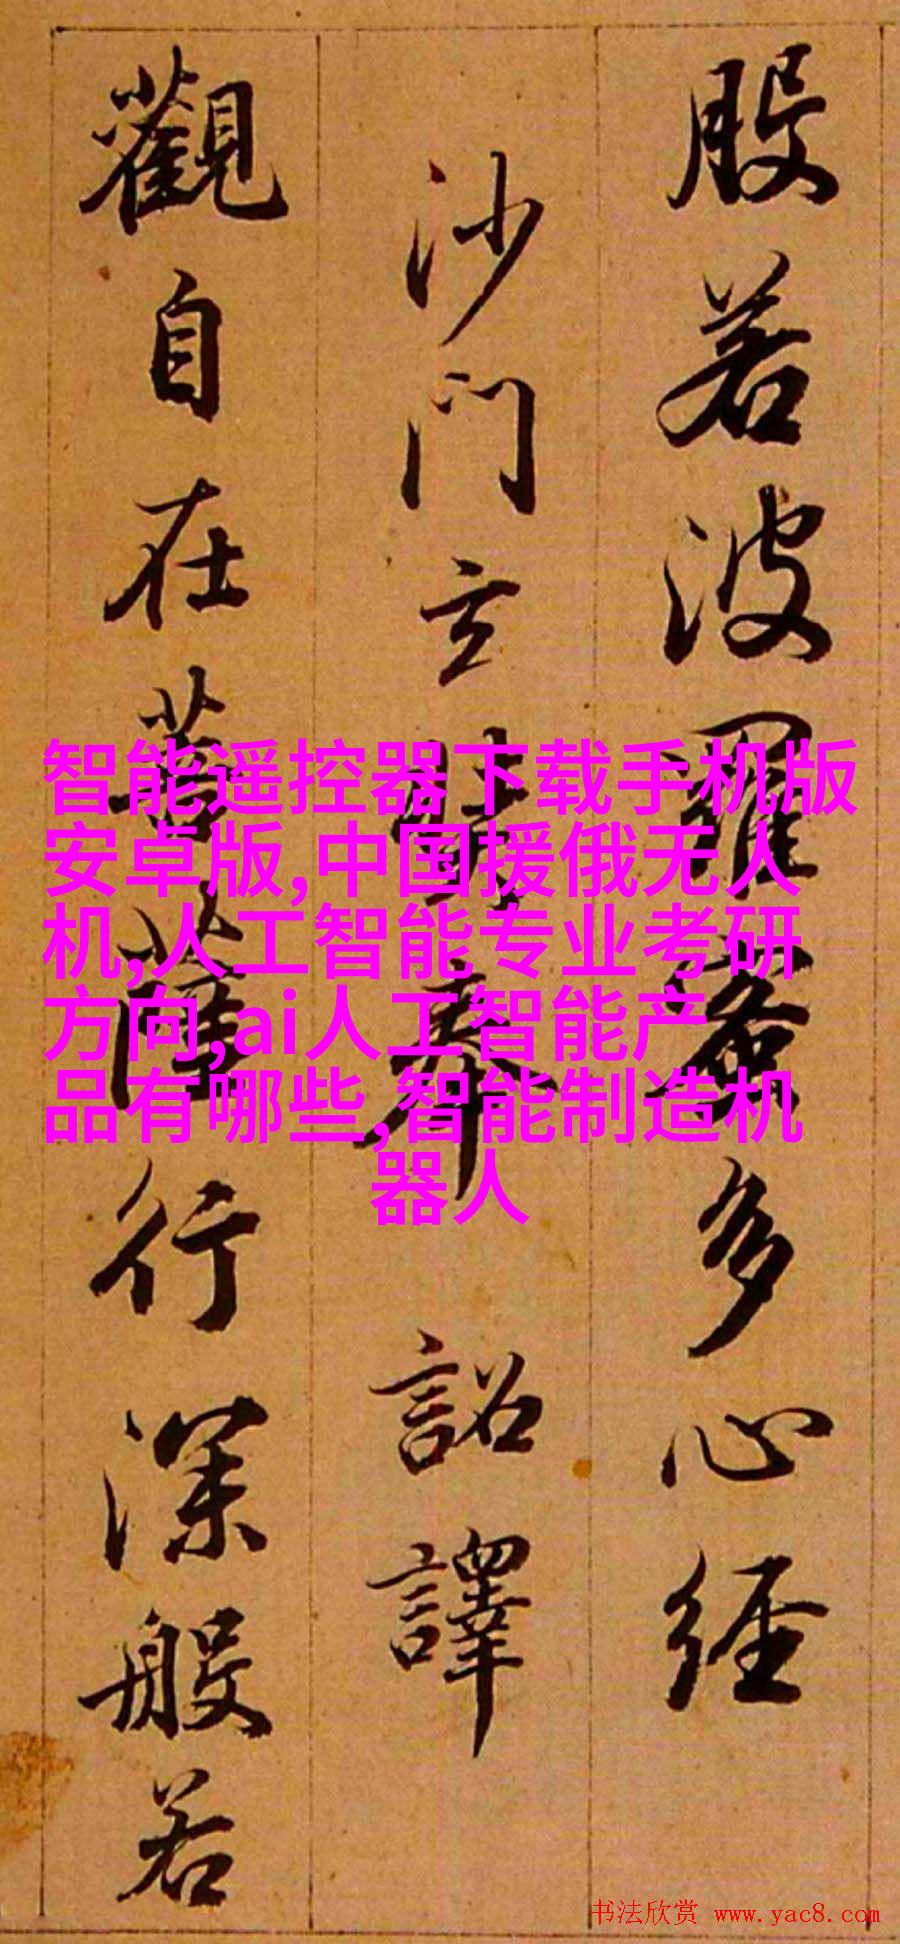 般若波羅蜜多心經
沙門玄奘奉 詔譯
觀自在菩薩行深般若
智能遥控器下载手机版
安卓版,中国援俄无人
机,人工智能专业考研
方向,ai人工智能产
品有哪些,智能制造机
器人
书法欣赏 www.yac8.com